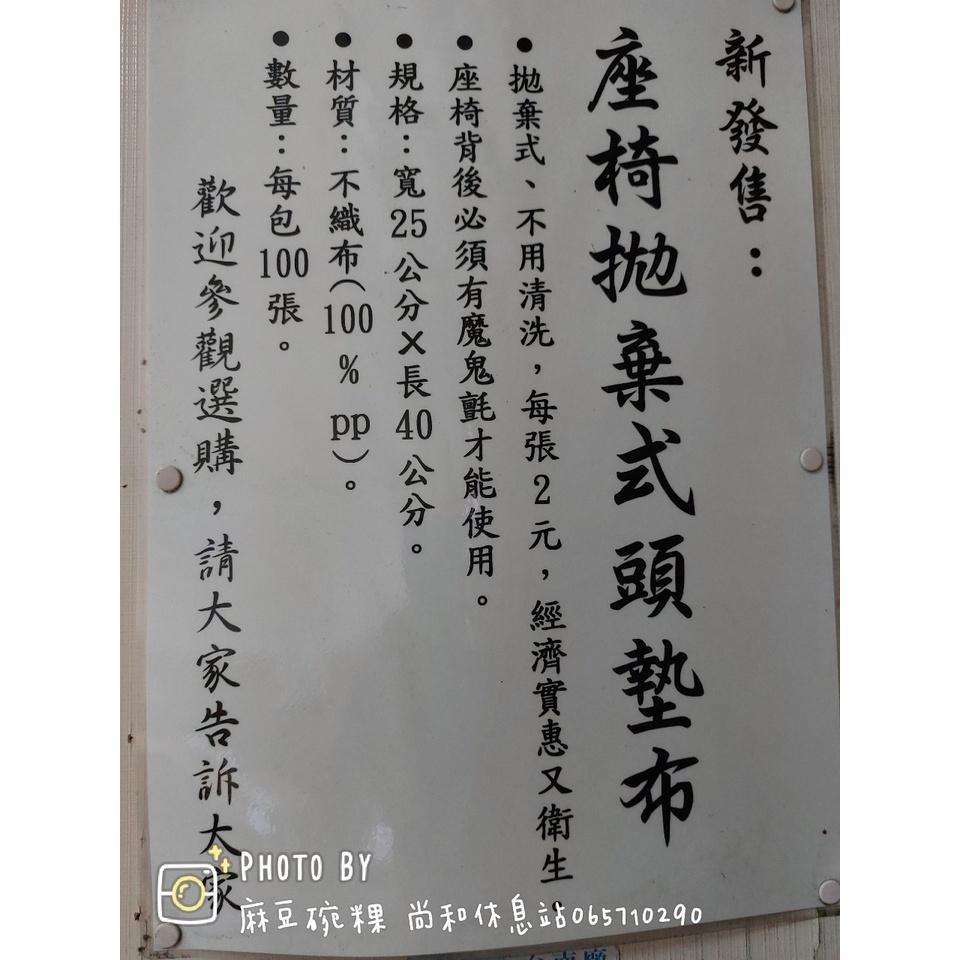 新發售：
座椅拋棄式頭墊布
●拋棄式、不用清洗，每張2元，經濟實惠又衛生。
●座椅背後必須有魔鬼氈才能使用。
●規格：寬25公分×長40公分。
●材質：不織布(100%pp)。
●數量：每包100張。
歡迎參觀選購，請大家告訴大家
PHOTO BY
麻豆碗粿 尚和休息站065710290